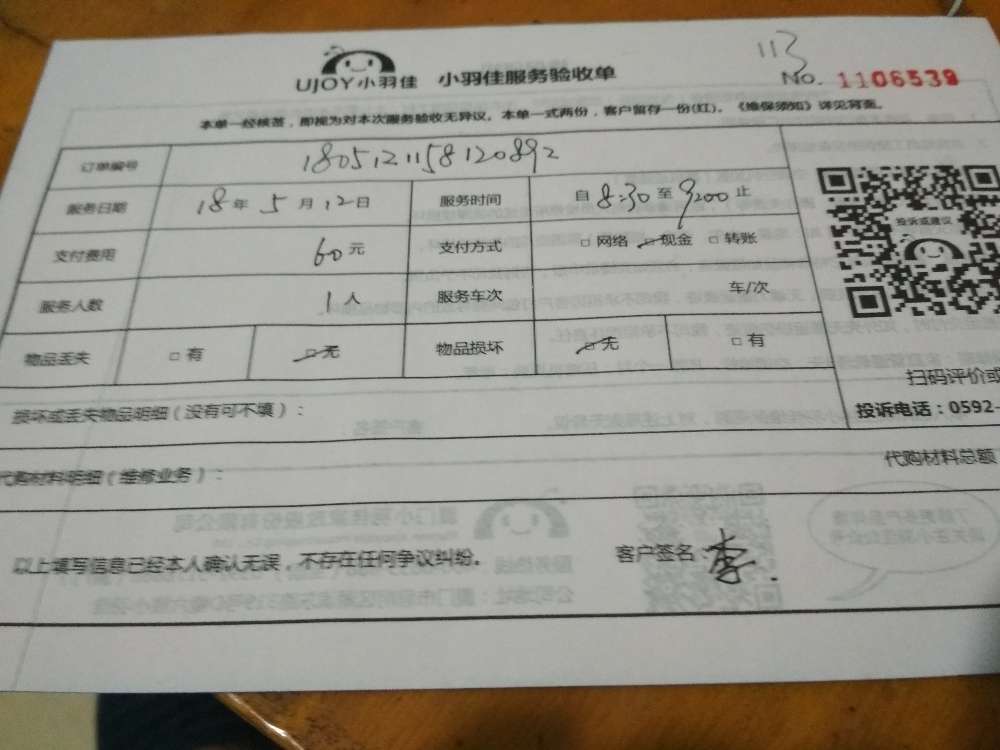 113
UJOY小羽佳 小羽佳服务验收单 No. 1106539
本单一经核签，即视为对本次服务验收无异议。本单一式两份，客户留存一份(红)。《维保须知》详见背面。
订单编号 1805121158120892
服务日期 18年5月12日 服务时间 自8:30至9:00止
支付费用 60元 支付方式 □网络 □现金 □转账
服务人数 1人 服务车次 车/次
物品丢失 □有 □无 物品损坏 □无 □有
投诉或建议
扫码评价或
损坏或丢失物品明细（没有可不填）：
投诉电话：0592-
代购材料明细（维修业务）： 代购材料总额
以上填写信息已经本人确认无误，不存在任何争议纠纷。 客户签名：李